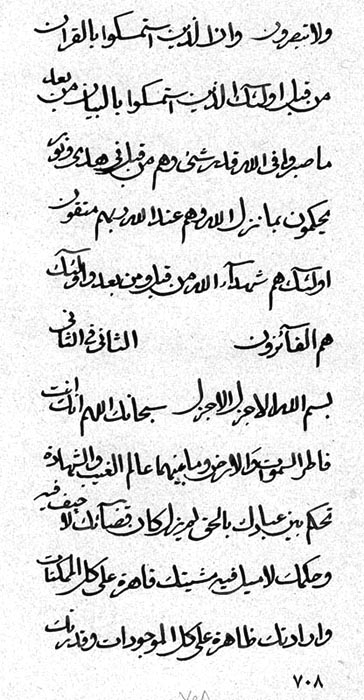 ولا تبصرون وان الذين استمسكوا بالقران
من قبل اولئك الذين استمسكوا بالبيان من بعد
ما صبروا في الله قدر شئ وهم من قبل في هدى ونور
يحكمون بما نزل الله وهم عند الله ربهم متقون
اولئك هم شهداء الله من قبل ومن بعد واولئك
هم الفائزون الثاني في الثاني
بسم الله الاجزل الاجزل سبحانك اللهم انك انت
فاطر السموات والارض وما بينهما عالم الغيب والشهادة
تحكم بين عبادك بالحق لم يزل كان قضائك لا حيف فيه
وحكمك لا ميل فيه مشيتك قاهرة على كل الممكنات
وارادتك ظاهرة على كل الموجودات وقدرتك
٧٠٨